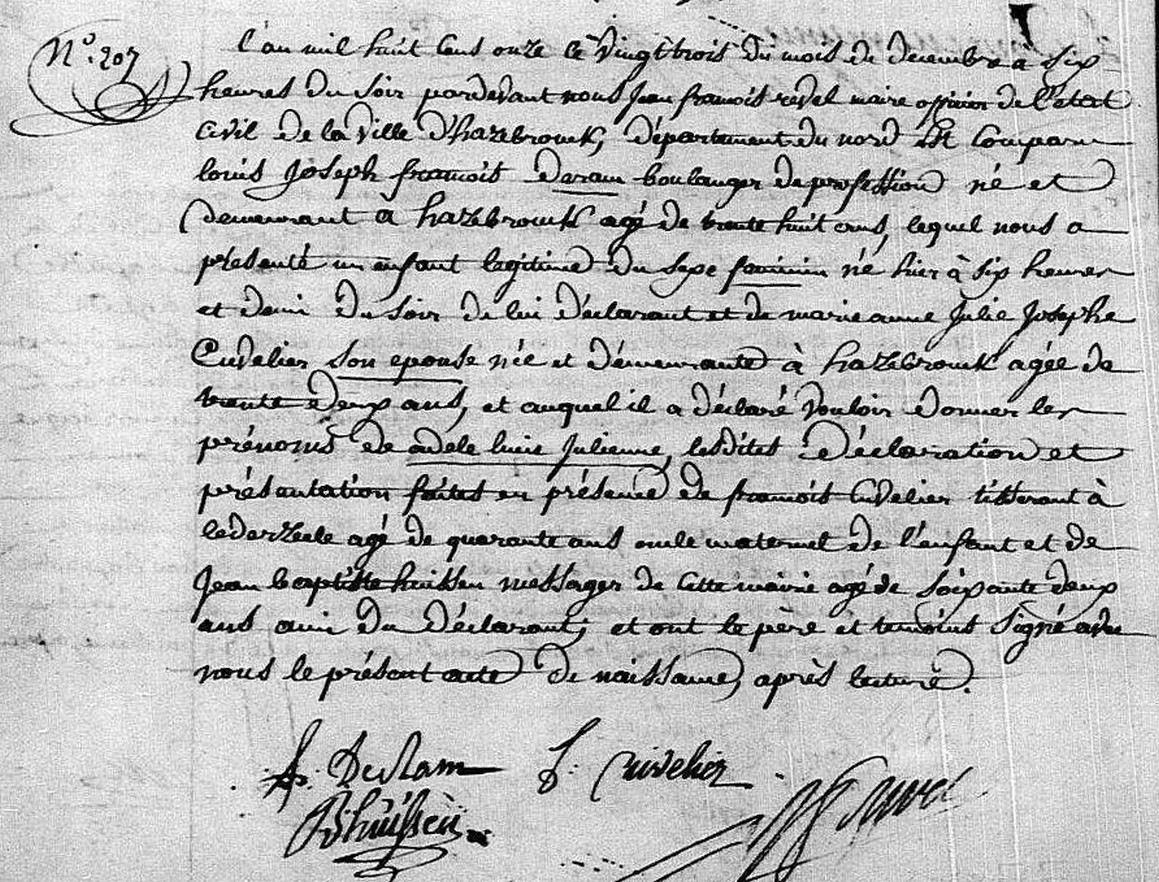 N.° 207
l'an mil huit cens onze le vingt trois du mois de decembre à six
heures du soir pardevant nous Jean françois revel maire officier de l'état
civil de la ville d'hazebrouck, département du nord est comparu
louis Joseph françois daram boulanger de profession né et
demeurant a hazebrouck agé de trente huit ans, lequel nous a
présenté un enfant legitime du sexe feminin né hier à six heures
et demi du soir de lui déclarant et de marie anne Julie Josephe
Cuvelier son epouse née et démeurante à hazebrouck agée de
trente deux ans, et auquel il a déclaré vouloir donner les
prénoms de adele lucie Julienne, lesdites déclaration et
présentation faites en présence de françois Cuvelier tisserant à
lederzeele agé de quarante ans oncle maternel de l'enfant et de
Jean baptiste huissen messager de cette mairie agé de soixante deux
ans ami du déclarant; et ont le père et temoins signé avec
nous le présent acte de naissance, après lecture.
f: Cuvelier
B huissen